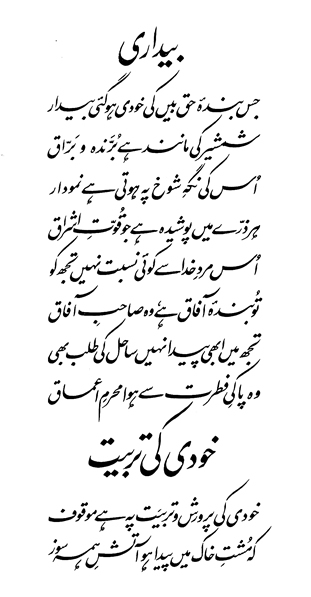 بیداری
جس بندۂ حق بیں کی خودی ہو گئی بیدار
شمشیر کی مانند ہے بُرّندہ و برّاق
اُس کی نگہِ شوخ پہ ہوتی ہے نمودار
ہر ذرّے میں پوشیدہ ہے جو قُوّتِ اشراق
اُس مردِ خدا سے کوئی نسبت نہیں تجھ کو
تُو بندۂ آفاق ہے وہ صاحبِ آفاق
تجھ میں ابھی پیدا نہیں ساحل کی طلب بھی
وہ پاکیِ فطرت سے ہوا محرمِ اعماق
خودی کی تربیت
خودی کی پرورش و تربیت پہ ہے موقوف
کہ مُشتِ خاک میں پیدا ہو آتشِ ہمہ سوز